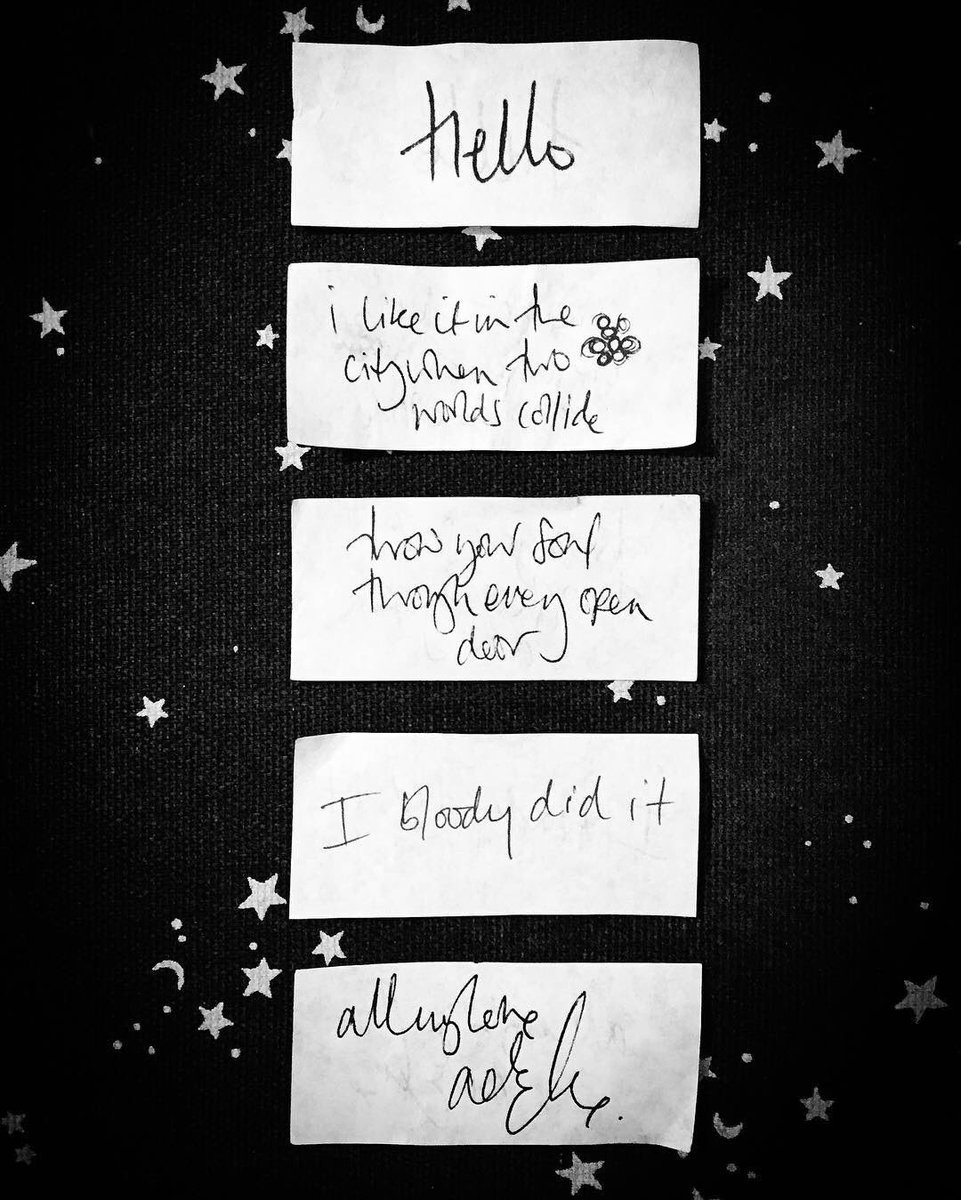 Hello
i like it in the
city when two
worlds collide
throw your soul
through every open
door
I bloody did it
all my love
adele